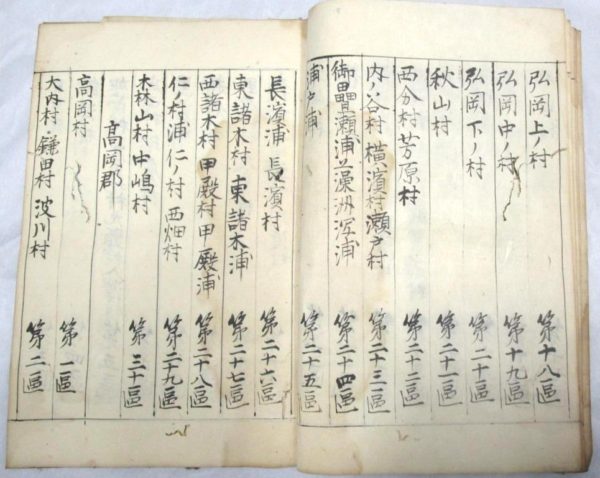 弘岡上ノ村 第十八區
弘岡中ノ村 第十九區
弘岡下ノ村 第二十區
秋山村 第二十一區
西分村 芳原村 第二十二區
内ノ谷村 横濱村 瀬戸村 第二十三區
御畳瀬浦 第二十四區
浦戸浦 第二十五區
長濱浦 長濱村 第二十六區
東諸木村 東諸木浦 第二十七區
西諸木村 甲殿村 甲殿浦 第二十八區
仁ノ村浦 仁ノ村 西畑村 第二十九區
森山村 中嶋村 第三十區
高岡郡
高岡村 第一區
大内村・鎌田村 波川村 第二區